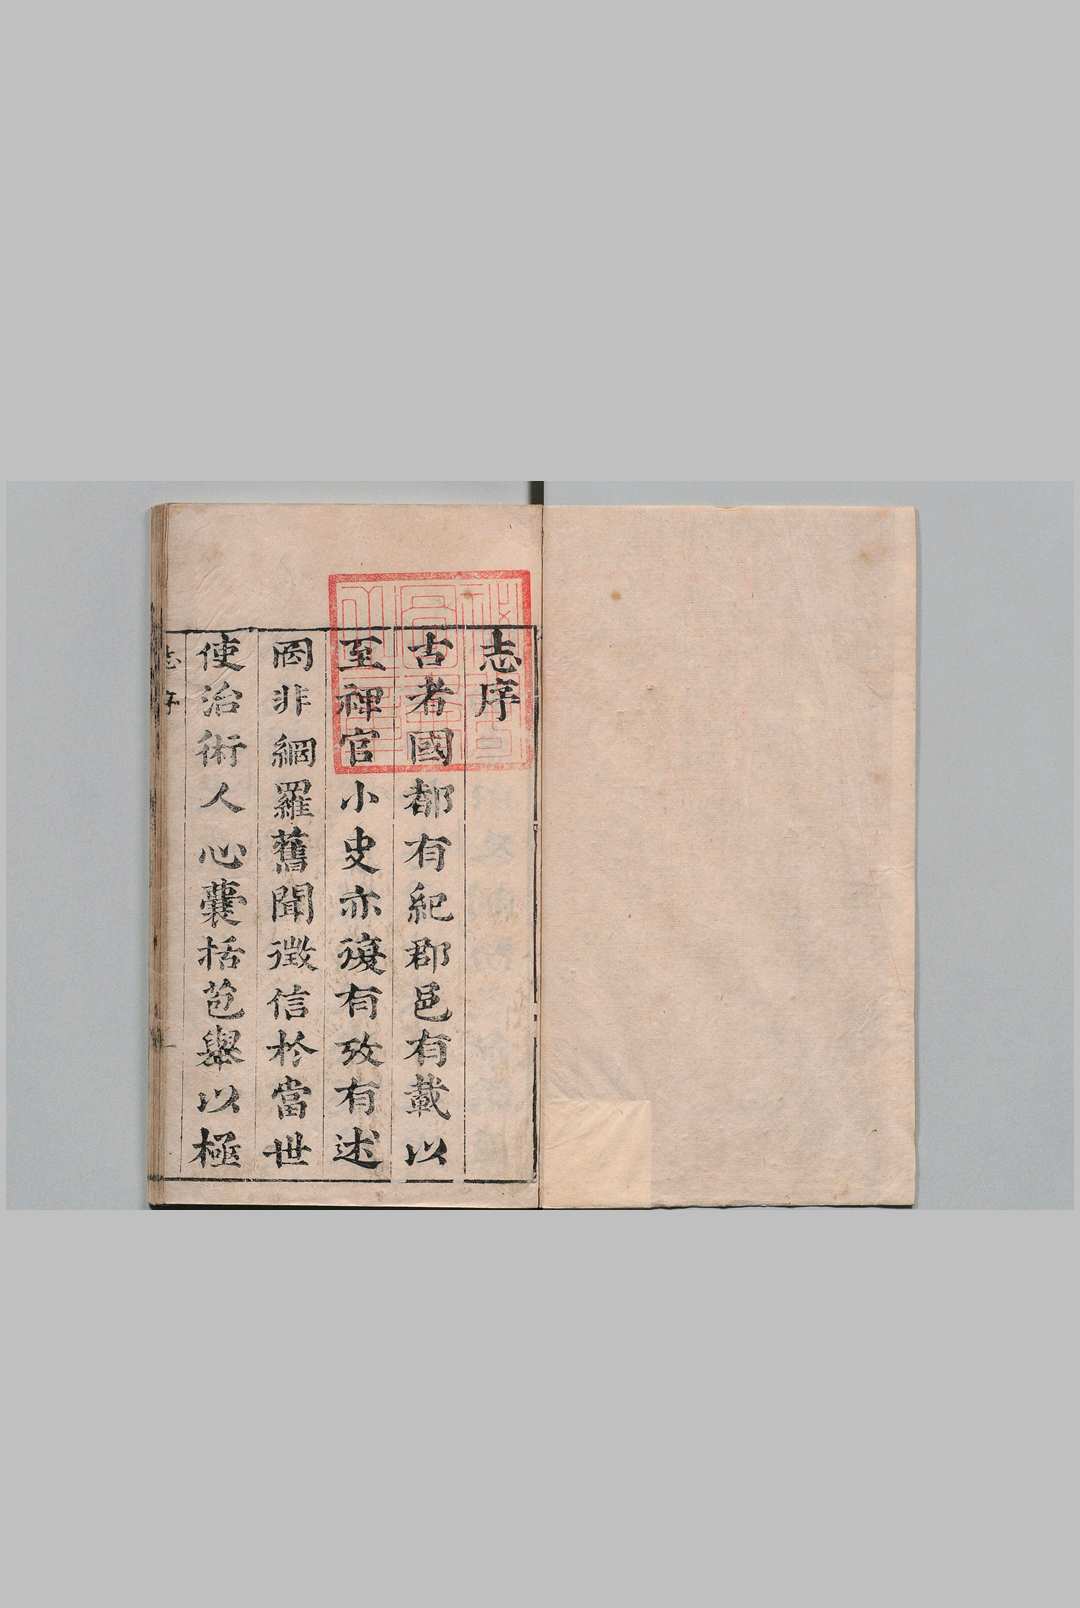 志序
古者國都有紀郡邑有載以
至裨官小史亦復有攷有述
罔非網羅舊聞徵信於當世
使治術人心囊括苞舉以極
志序